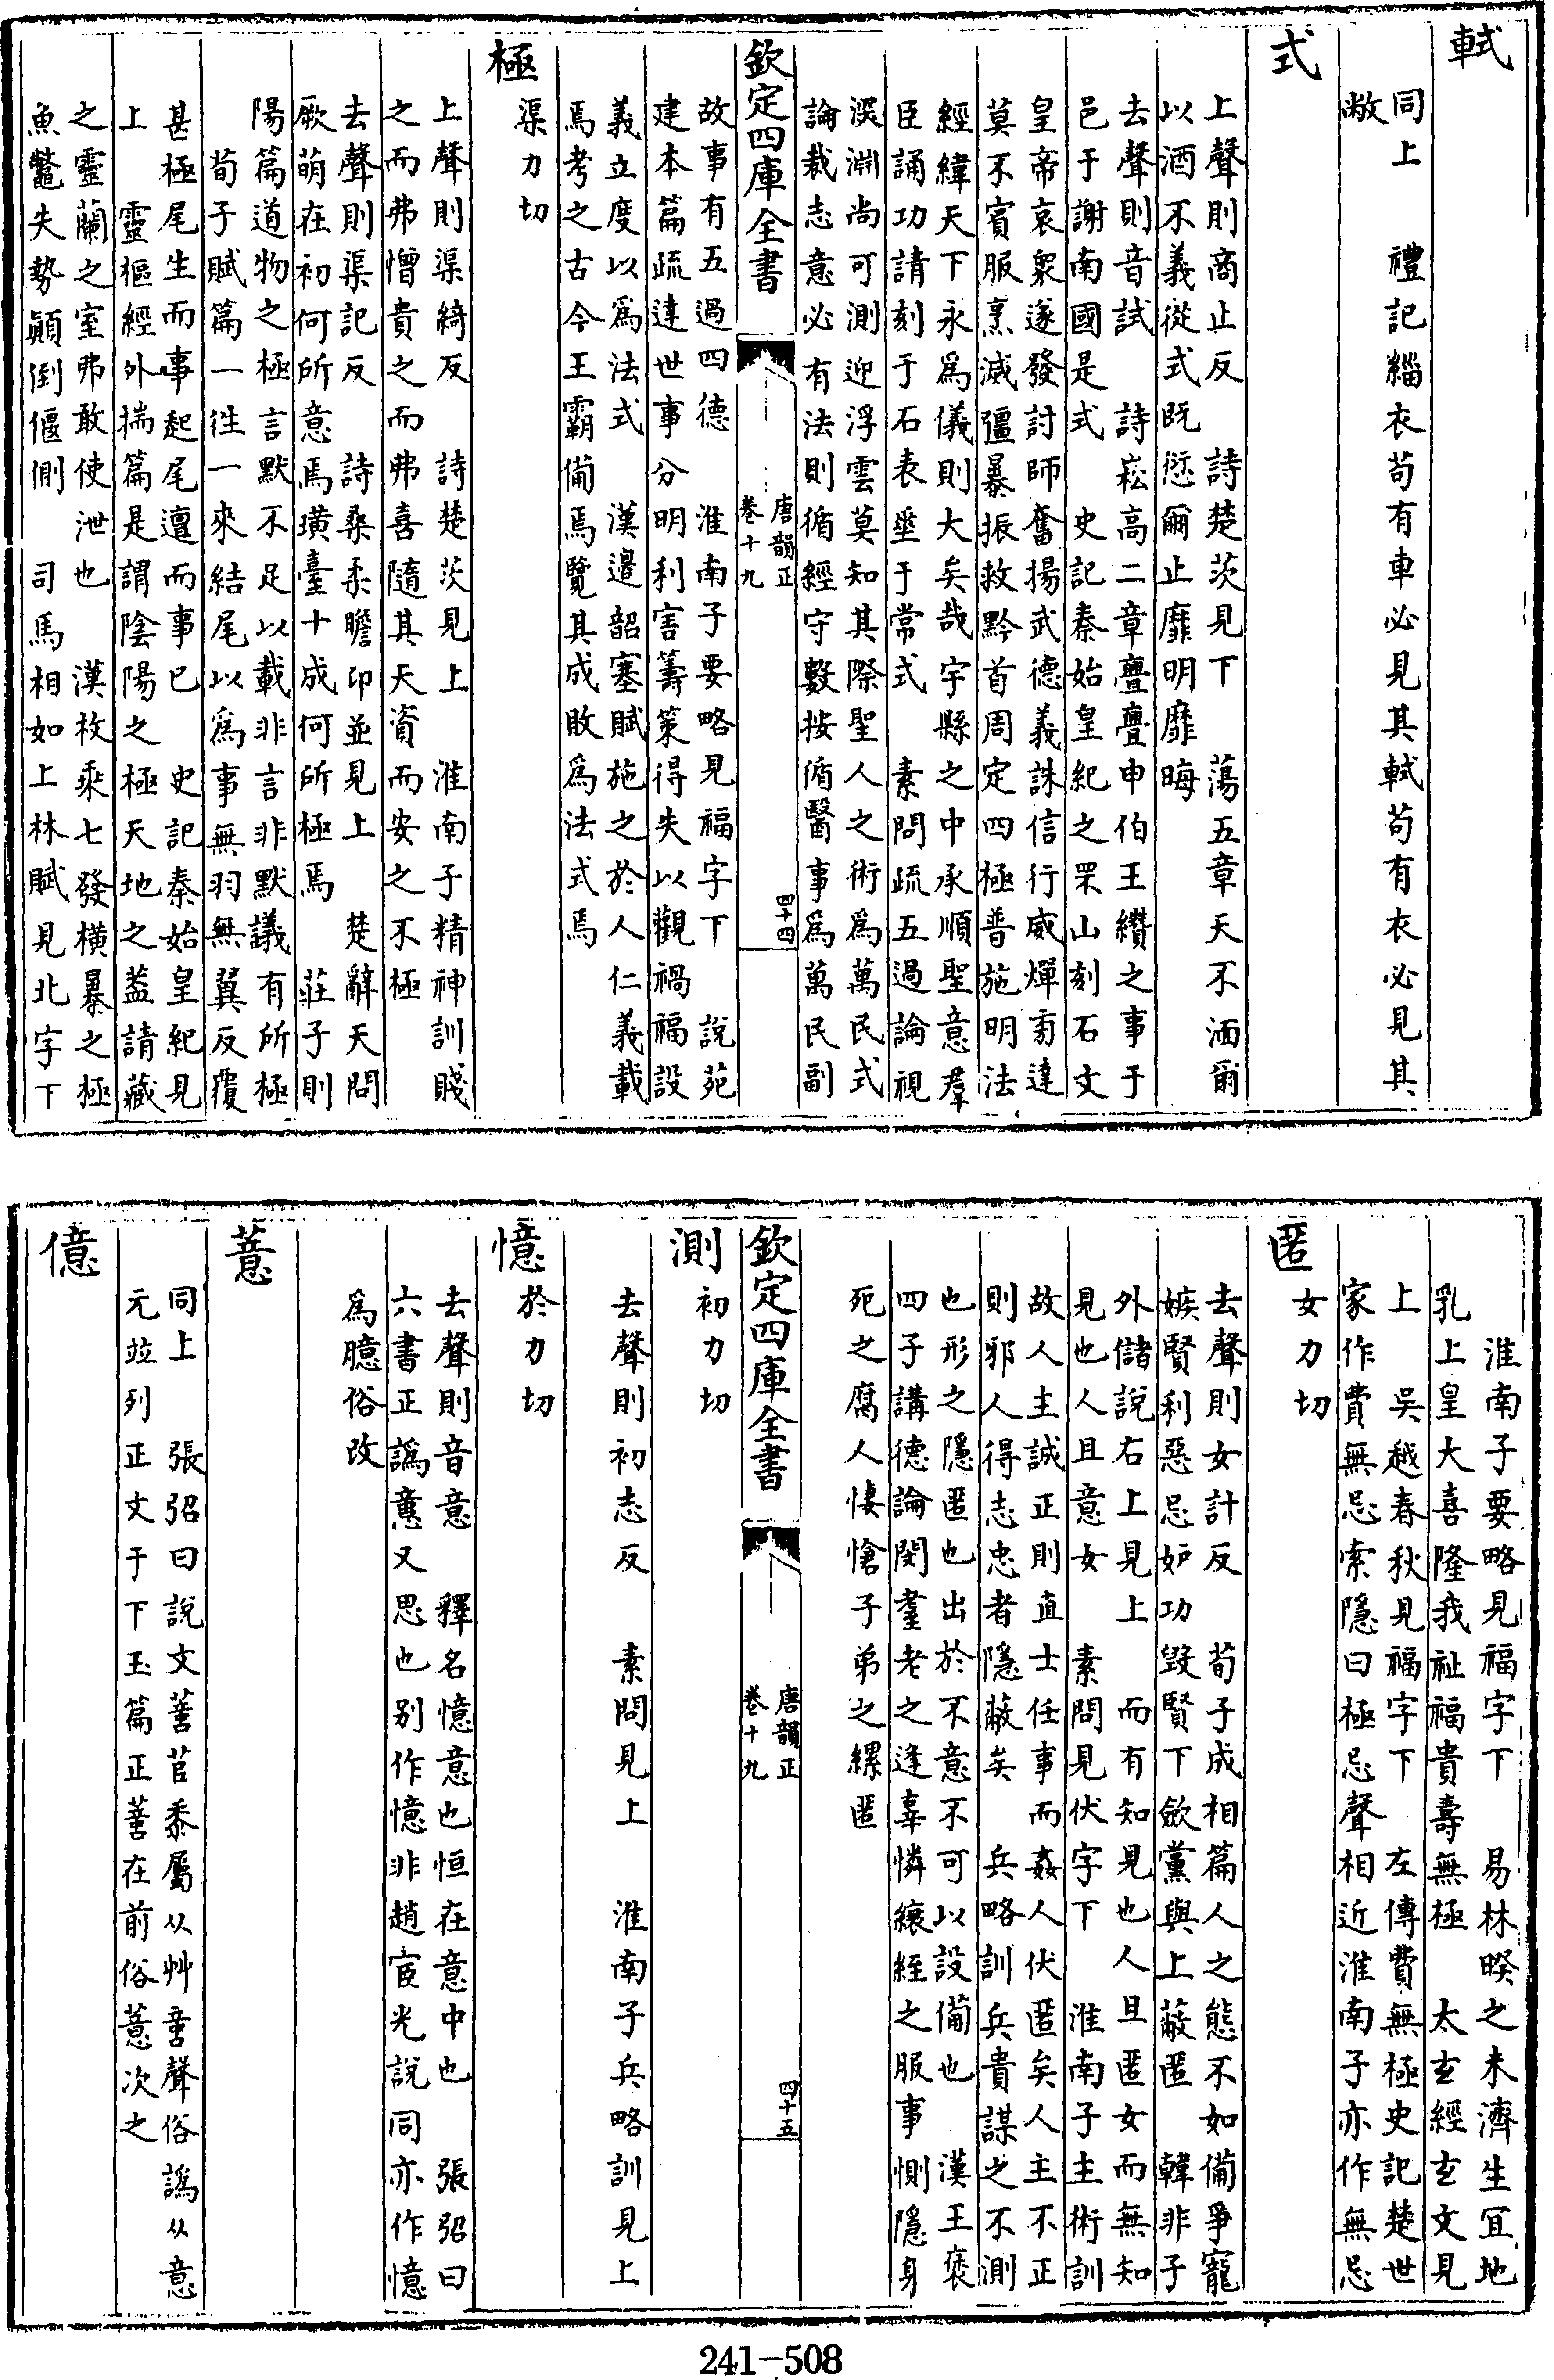 軾
同上　禮記緇衣苟有車必見其軾苟有衣必見其
敝
式
上聲則商止反　詩楚茨見下　蕩五章天不湎爾
以酒不義從式既愆爾止靡明靡晦
去聲則音試　詩崧高二章亹亹申伯王纘之事于
邑于謝南國是式　史記秦始皇紀之罘山刻石文
皇帝哀衆遂發討師奮揚武德義誅信行威燀旁達
莫不賓服烹滅彊暴振救黔首周定四極普施明法
經緯天下永爲儀則大矣哉宇縣之中承順聖意羣
臣誦功請刻于石表垂于常式　素問疏五過論視
深淵尚可測迎浮雲莫知其際聖人之術爲萬民式
論裁志意必有法則循經守數按循醫事爲萬民副
欽定四庫全書
唐韻正
卷十九
四十四
故事有五過四德　淮南子要略見福字下　說苑
建本篇疏達世事分明利害籌策得失以觀禍福設
義立度以爲法式　漢邊韶塞賦施之於人仁義載
焉考之古今王霸備焉覽其成敗爲法式焉
極
渠力切
上聲則渠綺反　詩楚茨見上　淮南子精神訓賤
之而弗憎貴之而弗喜隨其天資而安之不極
去聲則渠記反　詩桑柔瞻卬並見上　楚辭天問
厥萌在初何所意焉璜臺十成何所極焉　莊子則
陽篇道物之極言默不足以載非言非默議有所極
荀子賦篇一往一來結尾以爲事無羽無翼反覆
甚極尾生而事起尾邅而事已　史記秦始皇紀見
上　靈樞經外揣篇是謂陰陽之極天地之蓋請藏
之靈蘭之室弗敢使泄也　漢枚乘七發橫暴之極
魚鼈失勢顚倒偃側　司馬相如上林賦見北字下
淮南子要略見福字下　易林暌之未濟生宜地
乳上皇大喜隆我祉福貴壽無極　太玄經玄文見
上　吳越春秋見福字下　左傳費無極史記楚世
家作費無忌索隱曰極忌聲相近淮南子亦作無忌
匿
女力切
去聲則女計反　荀子成相篇人之態不如備爭寵
嫉賢利惡忌妒功毀賢下斂黨與上蔽匿　韓非子
外儲說右上見上　而有知見也人且匿女而無知
見也人且意女　素問見伏字下　淮南子主術訓
故人主誠正則直士任事而姦人伏匿矣人主不正
則邪人得志忠者隱蔽矣　兵略訓兵貴謀之不測
也形之隱匿也出於不意不可以設備也　漢王褒
四子講德論閔耄老之逢辜憐縗絰之服事惻隱身
死之腐人悽愴子弟之縲匿
欽定四庫全書
唐韻正
卷十九
四十五
測
初力切
去聲則初志反　素問見上　淮南子兵略訓見上
憶
於力切
去聲則音意　釋名憶意也恒在意中也　張弨曰
六書正譌意又思也別作憶非趙宧光說同亦作憶
爲臆俗改
薏
同上　張弨曰說文𦼮苢黍屬从艸𠶷聲俗譌从意
元竝列正文于下玉篇正𦼮在前俗薏次之
億
241-508